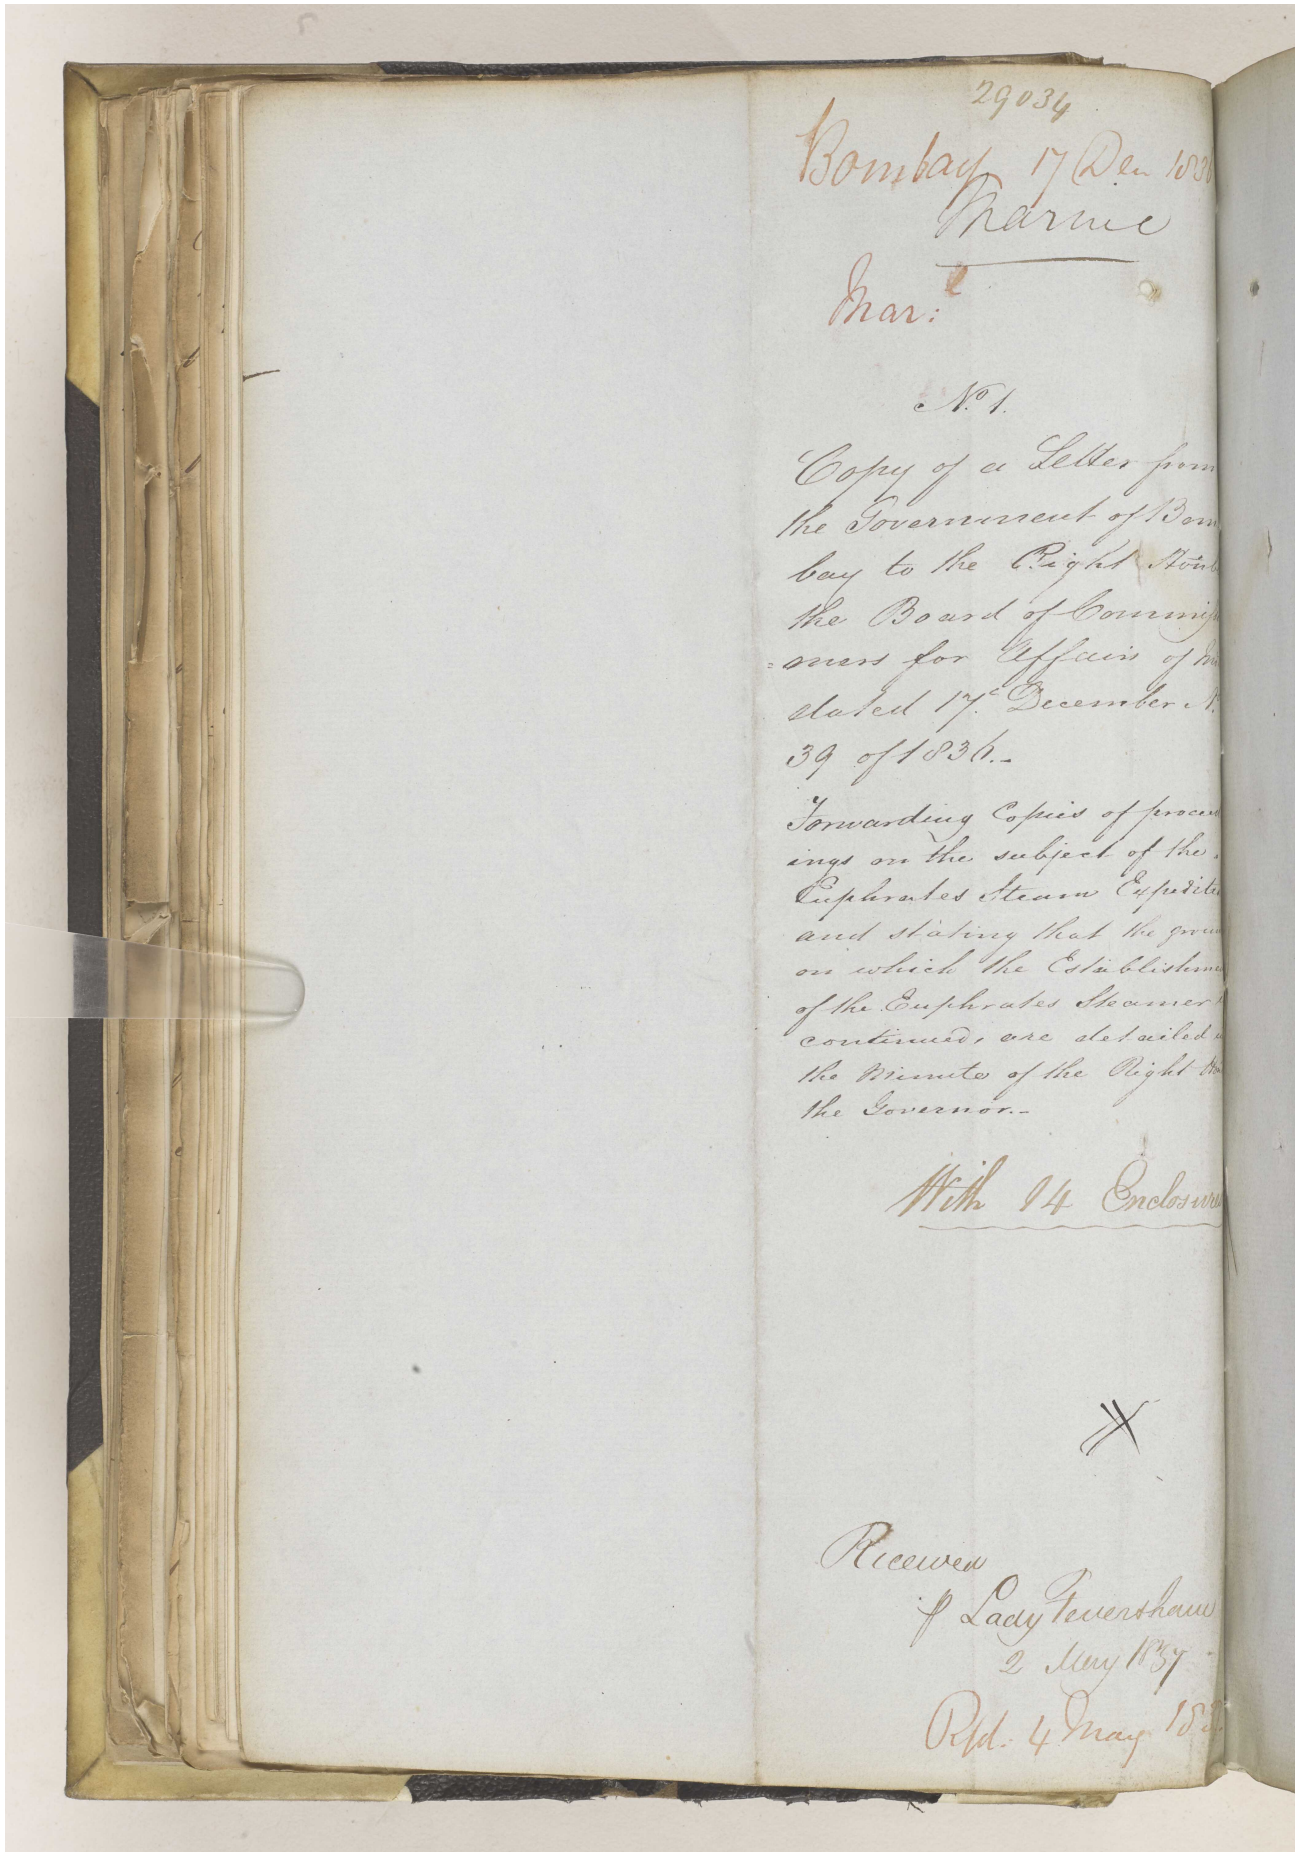 29034
Bombay 17 Dec 183
Marine
Mar:e
No. 1.
Copy of a Letter from
the Government of Bom
bay to the Right Honb
the Board of Commiss
=ners for Affairs of In
dated 17th December N.
39 of 1836.-
Forwarding Copies of proceed
ings on the subject of the
Euphrates Steam Expeditio
and stating that the groun
on which the Establishme
of the Euphrates Steamer
continued, are detailed
the Minute of the Right Hon
the Governor.-
With 14 Enclosures
Received
p Lady Feversham
2 May 1837
Rfd: 4 May 183